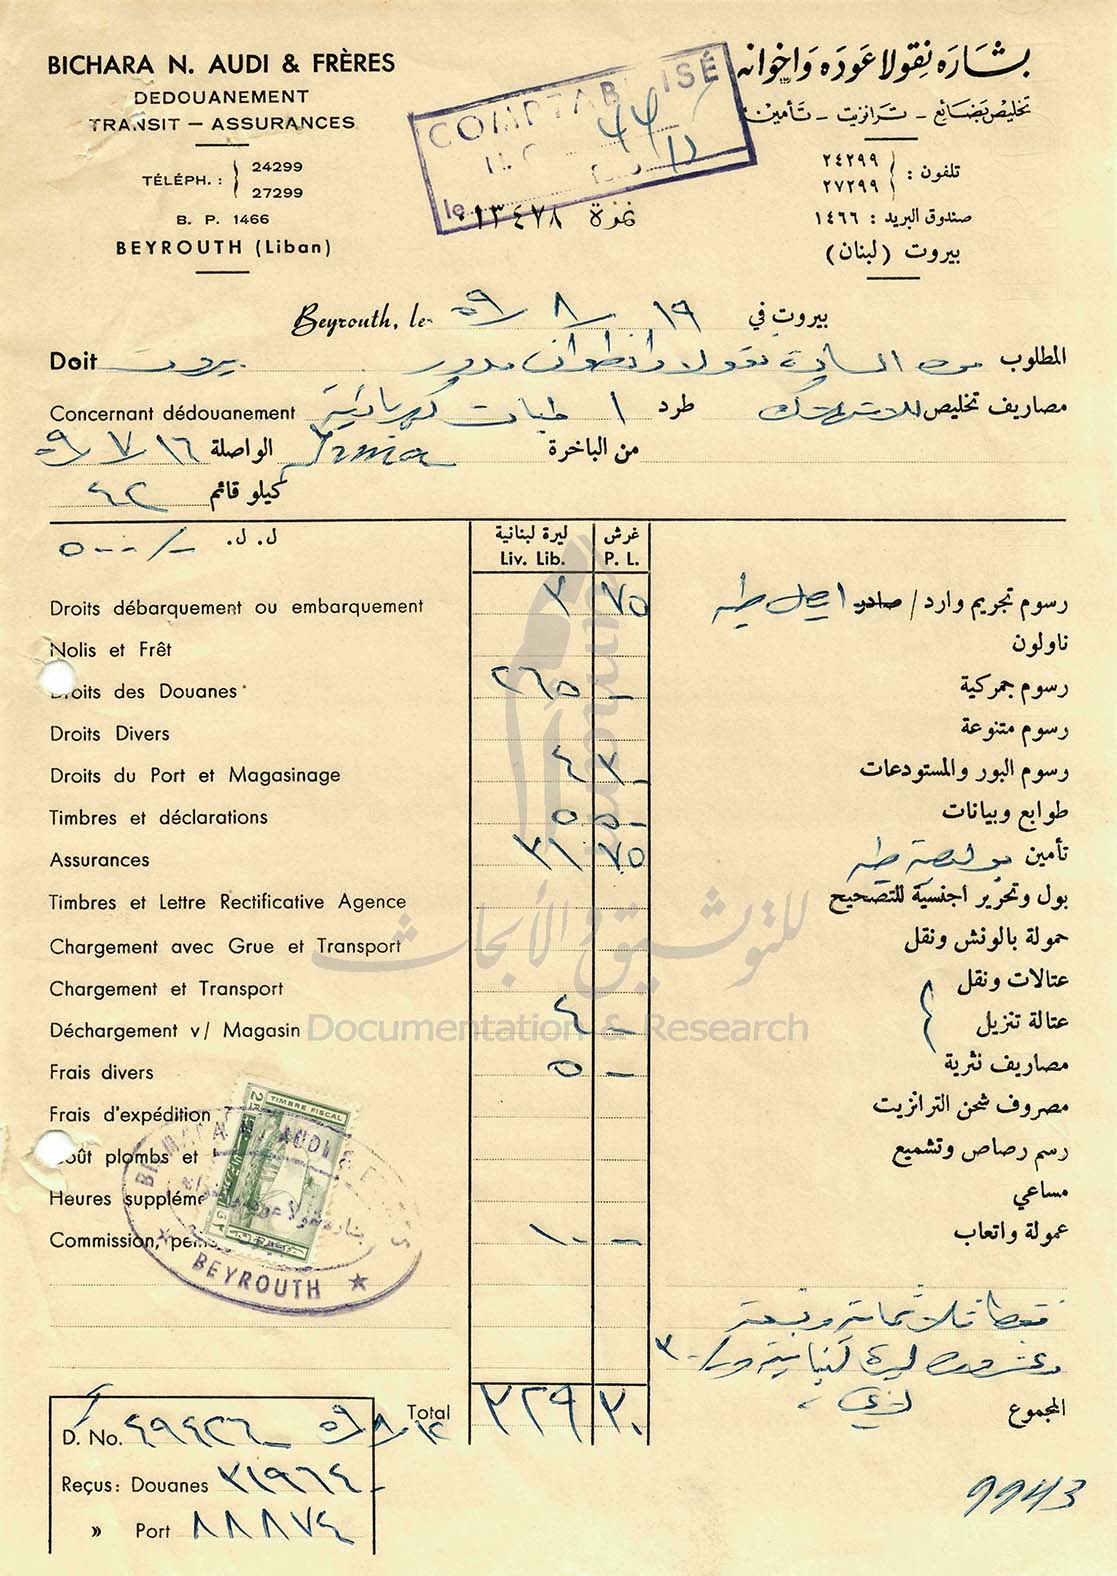 BICHARA N. AUDI & FRÈRES
DEDOUANEMENT
TRANSIT — ASSURANCES
TÉLÉPH. : 24299
27299
B. P. 1466
BEYROUTH (Liban)
COMPTABILISÉ
le
نمرة ٠١٣٤٧٨
بشاره نقولا عوده واخوانه
تخليص بضائع - ترانزيت - تأمين
تلفون : ٢٤٢٩٩
٢٧٢٩٩
صندوق البريد : ١٤٦٦
بيروت (لبنان)
Beyrouth, le ١٩/٨/٥٩ بيروت في
Doit المطلوب من السادة نقولا وانطوان مدور بيروت
Concernant dédouanement مصاريف تخليص للاستهلاك طرد ١ طلمبات كهربائية
من الباخرة Irma الواصلة ١٦/٧/٥٩
كيلو قائم ٤٢
ل.ل. ٥٠٠/-
ليرة لبنانية غرش
Liv. Lib. P. L.
Droits débarquement ou embarquement ٣ ٧٥ رسوم تجريم وارد / صادر ايصال طيه
Nolis et Frêt ناولون
Droits des Douanes ٢٦٥ - رسوم جمركية
Droits Divers رسوم متنوعة
Droits du Port et Magasinage ٤ ٣٠ رسوم البور والمستودعات
Timbres et déclarations ٥ ٥٠ طوابع وبيانات
Assurances ٣١ ٧٥ تأمين بوليصة طيه
Timbres et Lettre Rectificative Agence بول وتحرير اجنسية للتصحيح
Chargement avec Grue et Transport حمولة بالونش ونقل
Chargement et Transport عتالات ونقل
Déchargement v/ Magasin ٤ - عتالة تنزيل
Frais divers ٥ - مصاريف نثرية
Frais d'expédition مصروف شحن الترانزيت
Coût plombs et رسم رصاص وتشميع
Heures supplém مساعي
Commission, pei ١٠ - عمولة واتعاب
TIMBRE FISCAL
BICHARA N. AUDI & FRÈRES
بشاره نقولا عوده واخوانه
BEYROUTH
فقط ثلاثماية وتسعة
وعشرون ليرة لبنانية و ٣٠/
لا غير
Total ٣٢٩ ٣٠ المجموع
D. No. ٤٩٤٢٦ - ١٢/٨/٥٩
Reçus: Douanes ٢١٩٦٤ -
» Port ٨٨٨٧٤
9943
للتوثيق والأبحاث
Documentation & Research